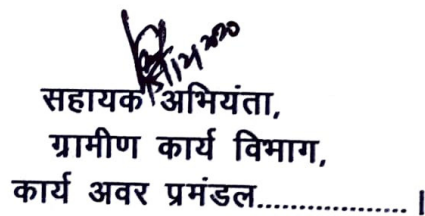 सहायक अभियंता,
ग्रामीण कार्य विभाग,
कार्य अवर प्रमंडल..................।